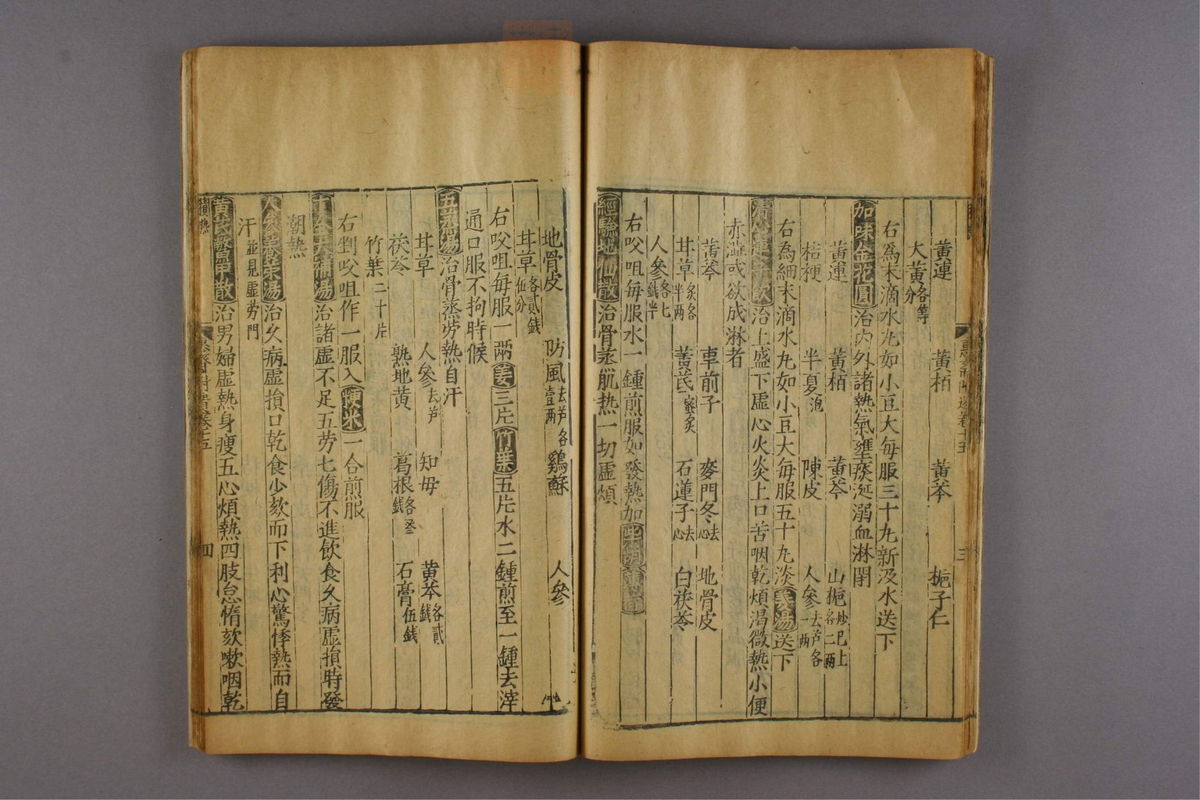 黃連　黃栢　黃芩　梔子仁
大黃各等分
右爲末滴水丸如小豆大每服三十丸新汲水送下
加味金花圓治內外諸熱氣壅痰涎溺血淋閉
黃連　黃栢　黃芩　山梔炒已上各二兩
桔梗　半夏泡　陳皮　人參去芦各一兩
右為細末滴水丸如小豆大每服五十丸淡姜湯送下
清心蓮子飲治上盛下虛心火炎上口苦咽乾煩渴微熱小便
赤澁或欲成淋者
黃芩　車前子　麥門冬去心　地骨皮
甘草炙各半兩　黃芪蜜炙　石蓮子去心　白茯苓
人參各七錢半
右㕮咀每服水一鍾煎服如發熱加柴胡薄荷
經驗地仙散治骨蒸肌热一切虛煩
地骨皮　防風去芦各壹兩　鷄蘇　人參
甘草各貳錢伍分
右㕮咀每服一兩姜三片竹葉五片水二鍾煎至一鍾去滓
通口服不拘時候
五蒸湯治骨蒸劳熱自汗
甘草　人參去芦　知母　黃芩各貳錢
茯苓　熟地黃　葛根各叁錢　石膏伍錢
竹葉二十片
右剉㕮咀作一服入粳米一合煎服
十全大補湯治諸虛不足五劳七傷不進飲食久病虛損時發
潮熱
人參養榮湯治久病虛損口乾食少欬而下利心驚悸熱而自
汗並見虛劳門
黃芪鱉甲散治男婦虛熱身瘦五心煩熱四肢怠惰欬嗽咽乾